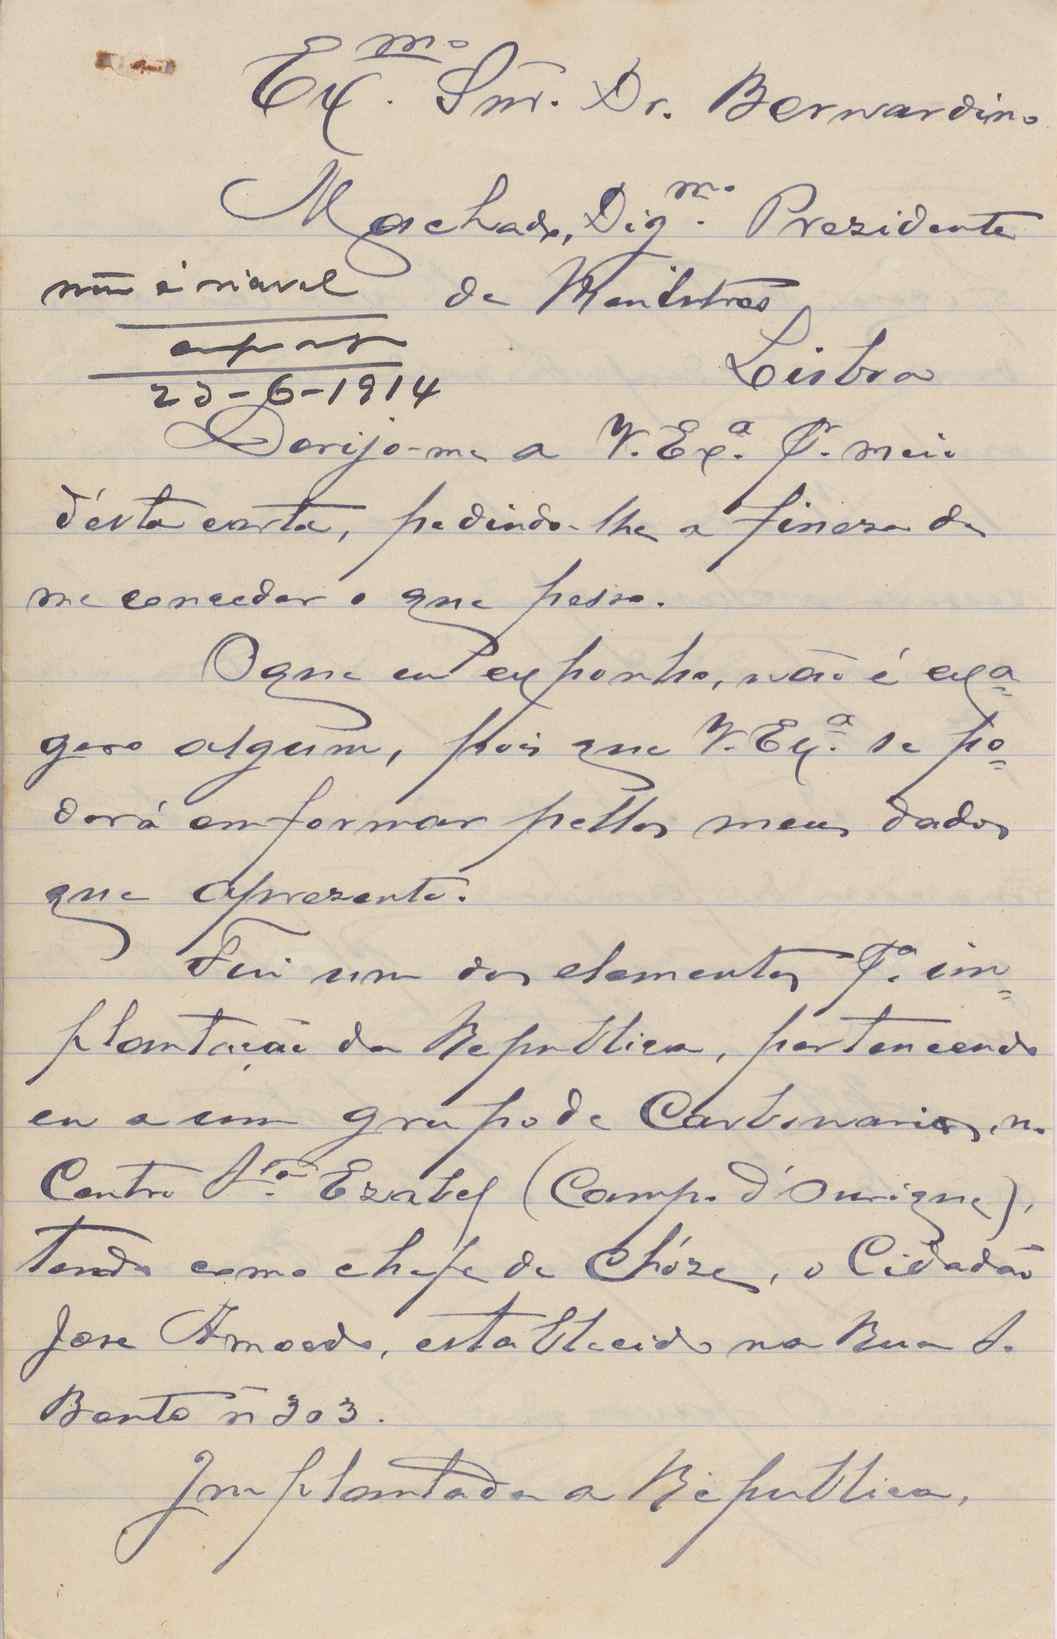 Ex.mo Snr. Dr. Bernardino
Machado, Dig.mo Prezidente
não é viavel
de Menistros
Lisboa
23-6-1914
Derijo-me a V. Ex.a P.r meio
d'ésta carta, pedindo-lhe a fineza de
me conceder o que pesso.
O que eu exponho, não é exa=
gero algum, pois que V. Ex.a se po=
derá enformar pellos meus dados
que aprezento.
Fui um dos elementos P.a im=
plantação da Republica, pertencendo
eu a um grupo de Carbonarios, no
Centro S.ta Ezabel (Campo d'Ourique),
tendo como chefe de Chóze, o Cidadão
Jose Amoedo, establecido na Rua S.
Bento nº 303.
Implantada a Republica,